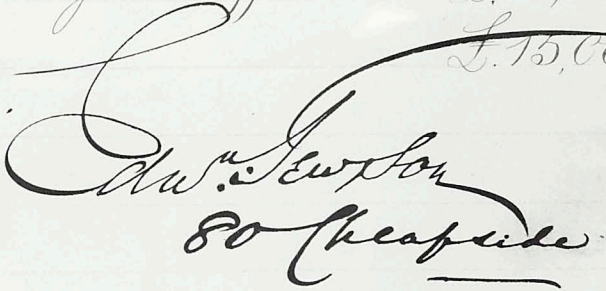 £.15,00
Edwⁿ: Tewson
80 Cheapside